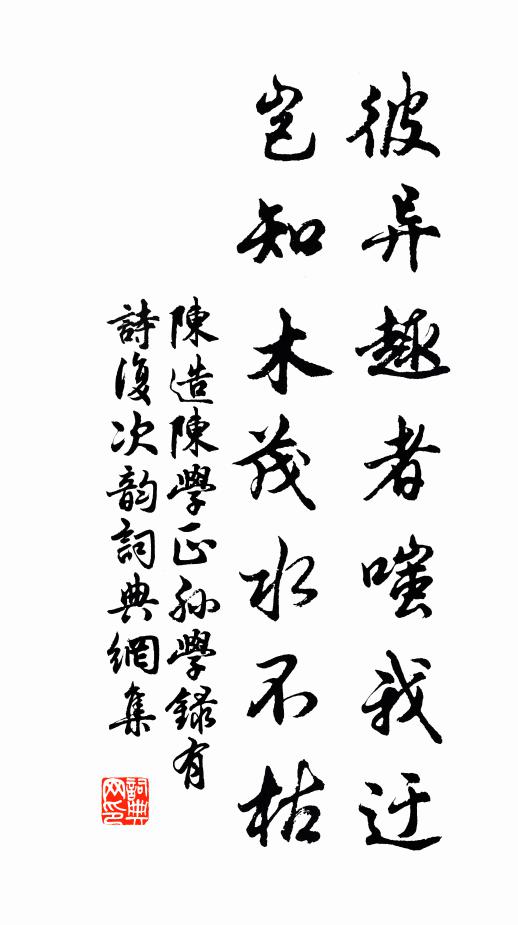 彼异趣者嗤我迂
岂知木茂水不枯
陳造陳學正孫學録有
詩復次韵詞典網集
詞典网印